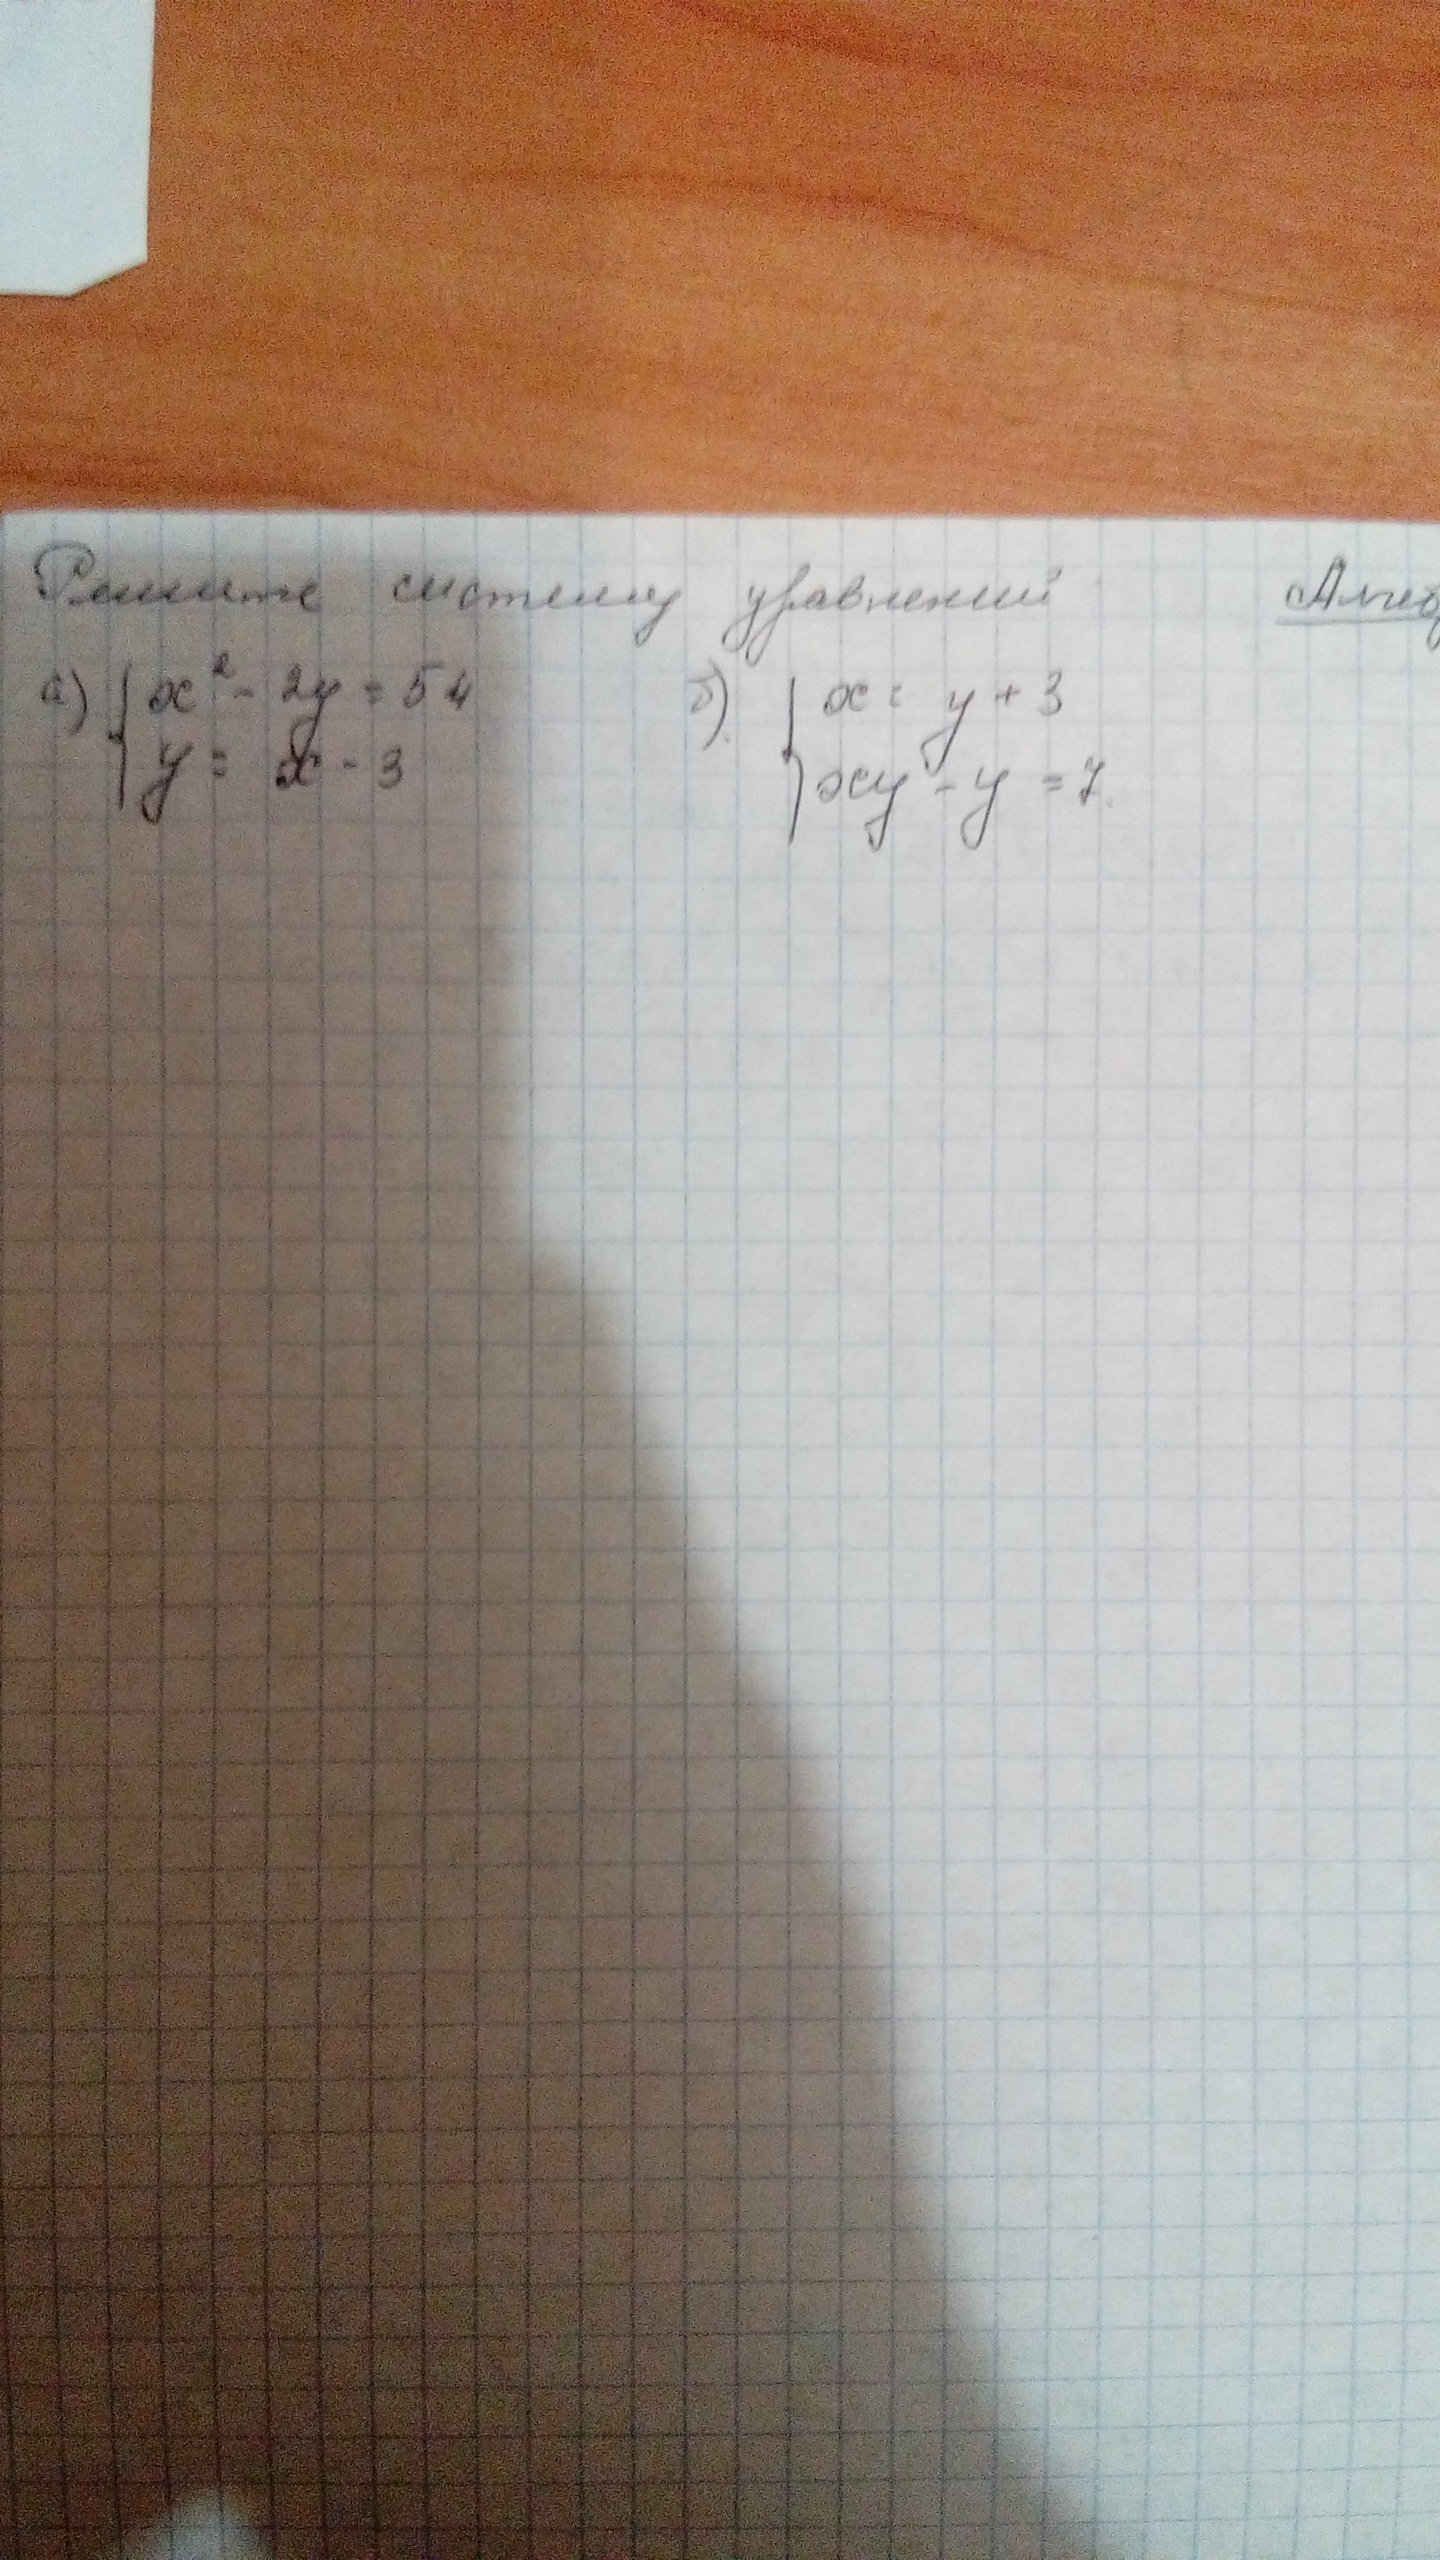 Решите систему уравнений Алгеб
а) { x² - 2y = 54 б). { x = y + 3
y = x - 3 xy - y = 7.